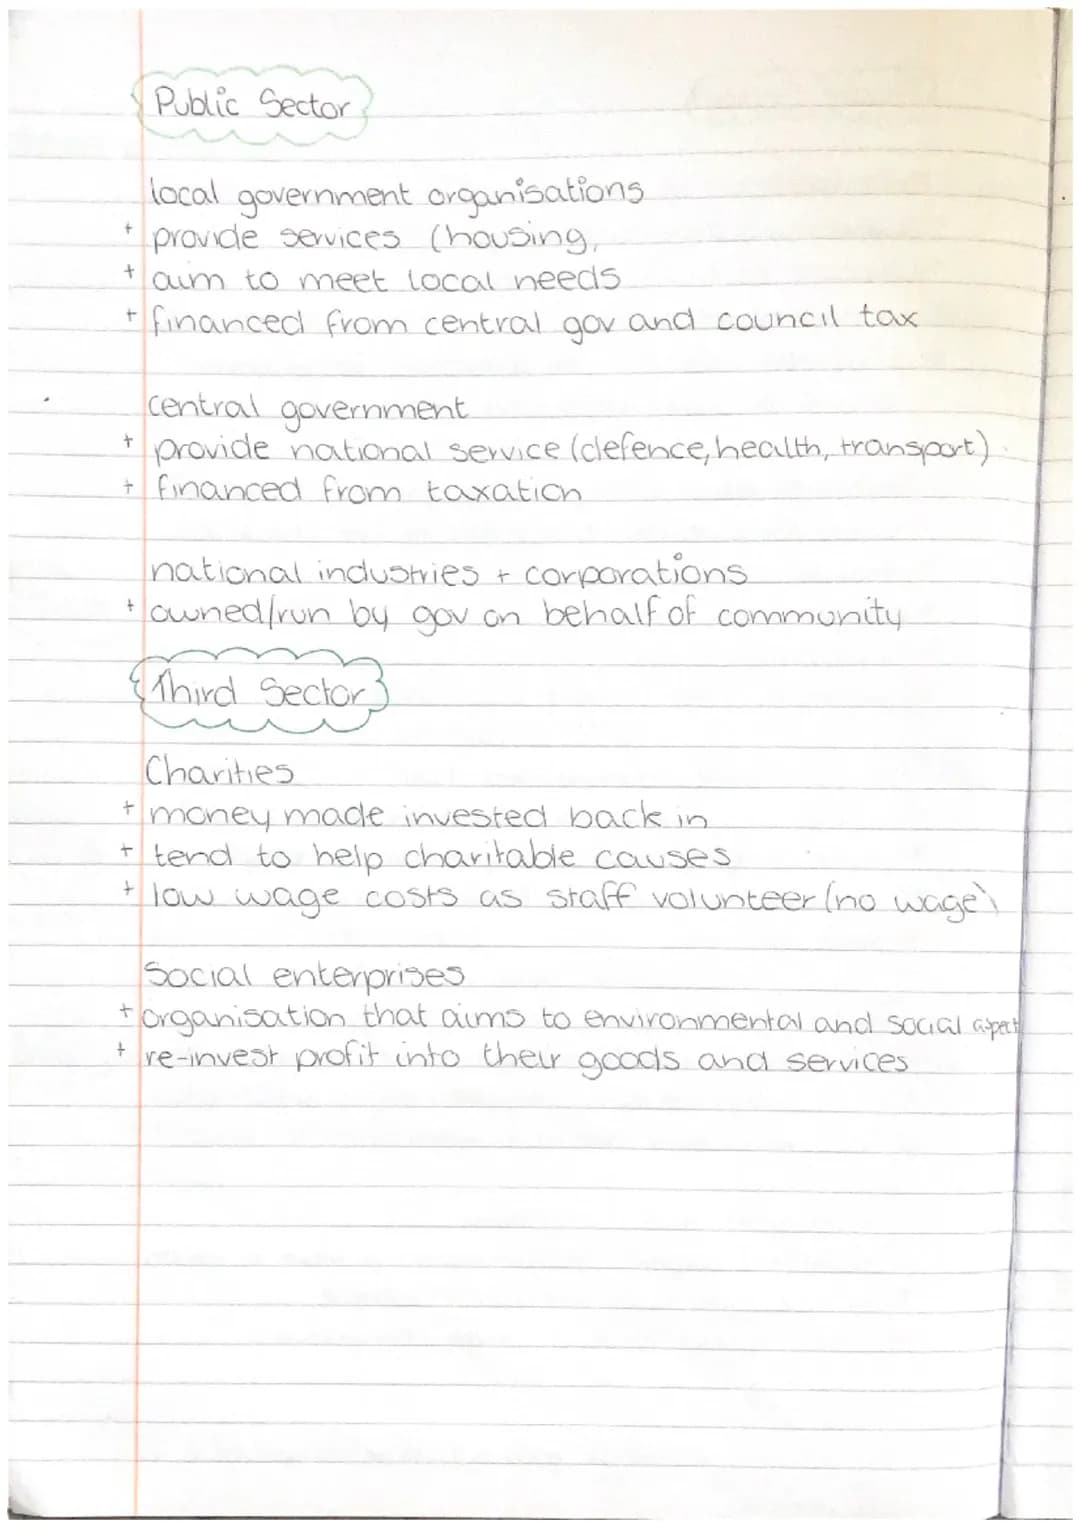 Public Sector
local government organisations
+ provide services (housing,
+ aim to meet local needs
+ financed from central gov and council tax
central government
+ provide national service (defence, health, transport)
+ financed from taxation
national industries + corporations
+ owned/run by gov on behalf of community
Third Sector
Charities
+ money made invested back in
+ tend to help charitable causes
+ low wage costs as staff volunteer (no wage)
Social enterprises
+ organisation that aims to environmental and social aspect
+ re-invest profit into their goods and services